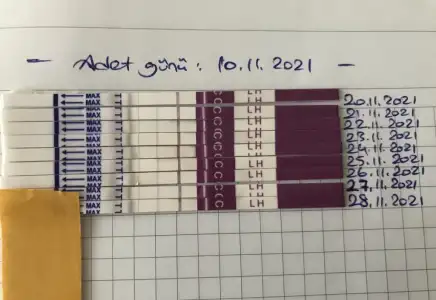 - Adet günü : 10.11.2021 -
MAX C LH 20.11.2021
MAX C LH 21.11.2021
MAX C LH 22.11.2021
MAX C LH 23.11.2021
MAX C LH 24.11.2021
MAX C LH 25.11.2021
MAX C LH 26.11.2021
MAX C LH 27.11.2021
MAX C LH 28.11.2021